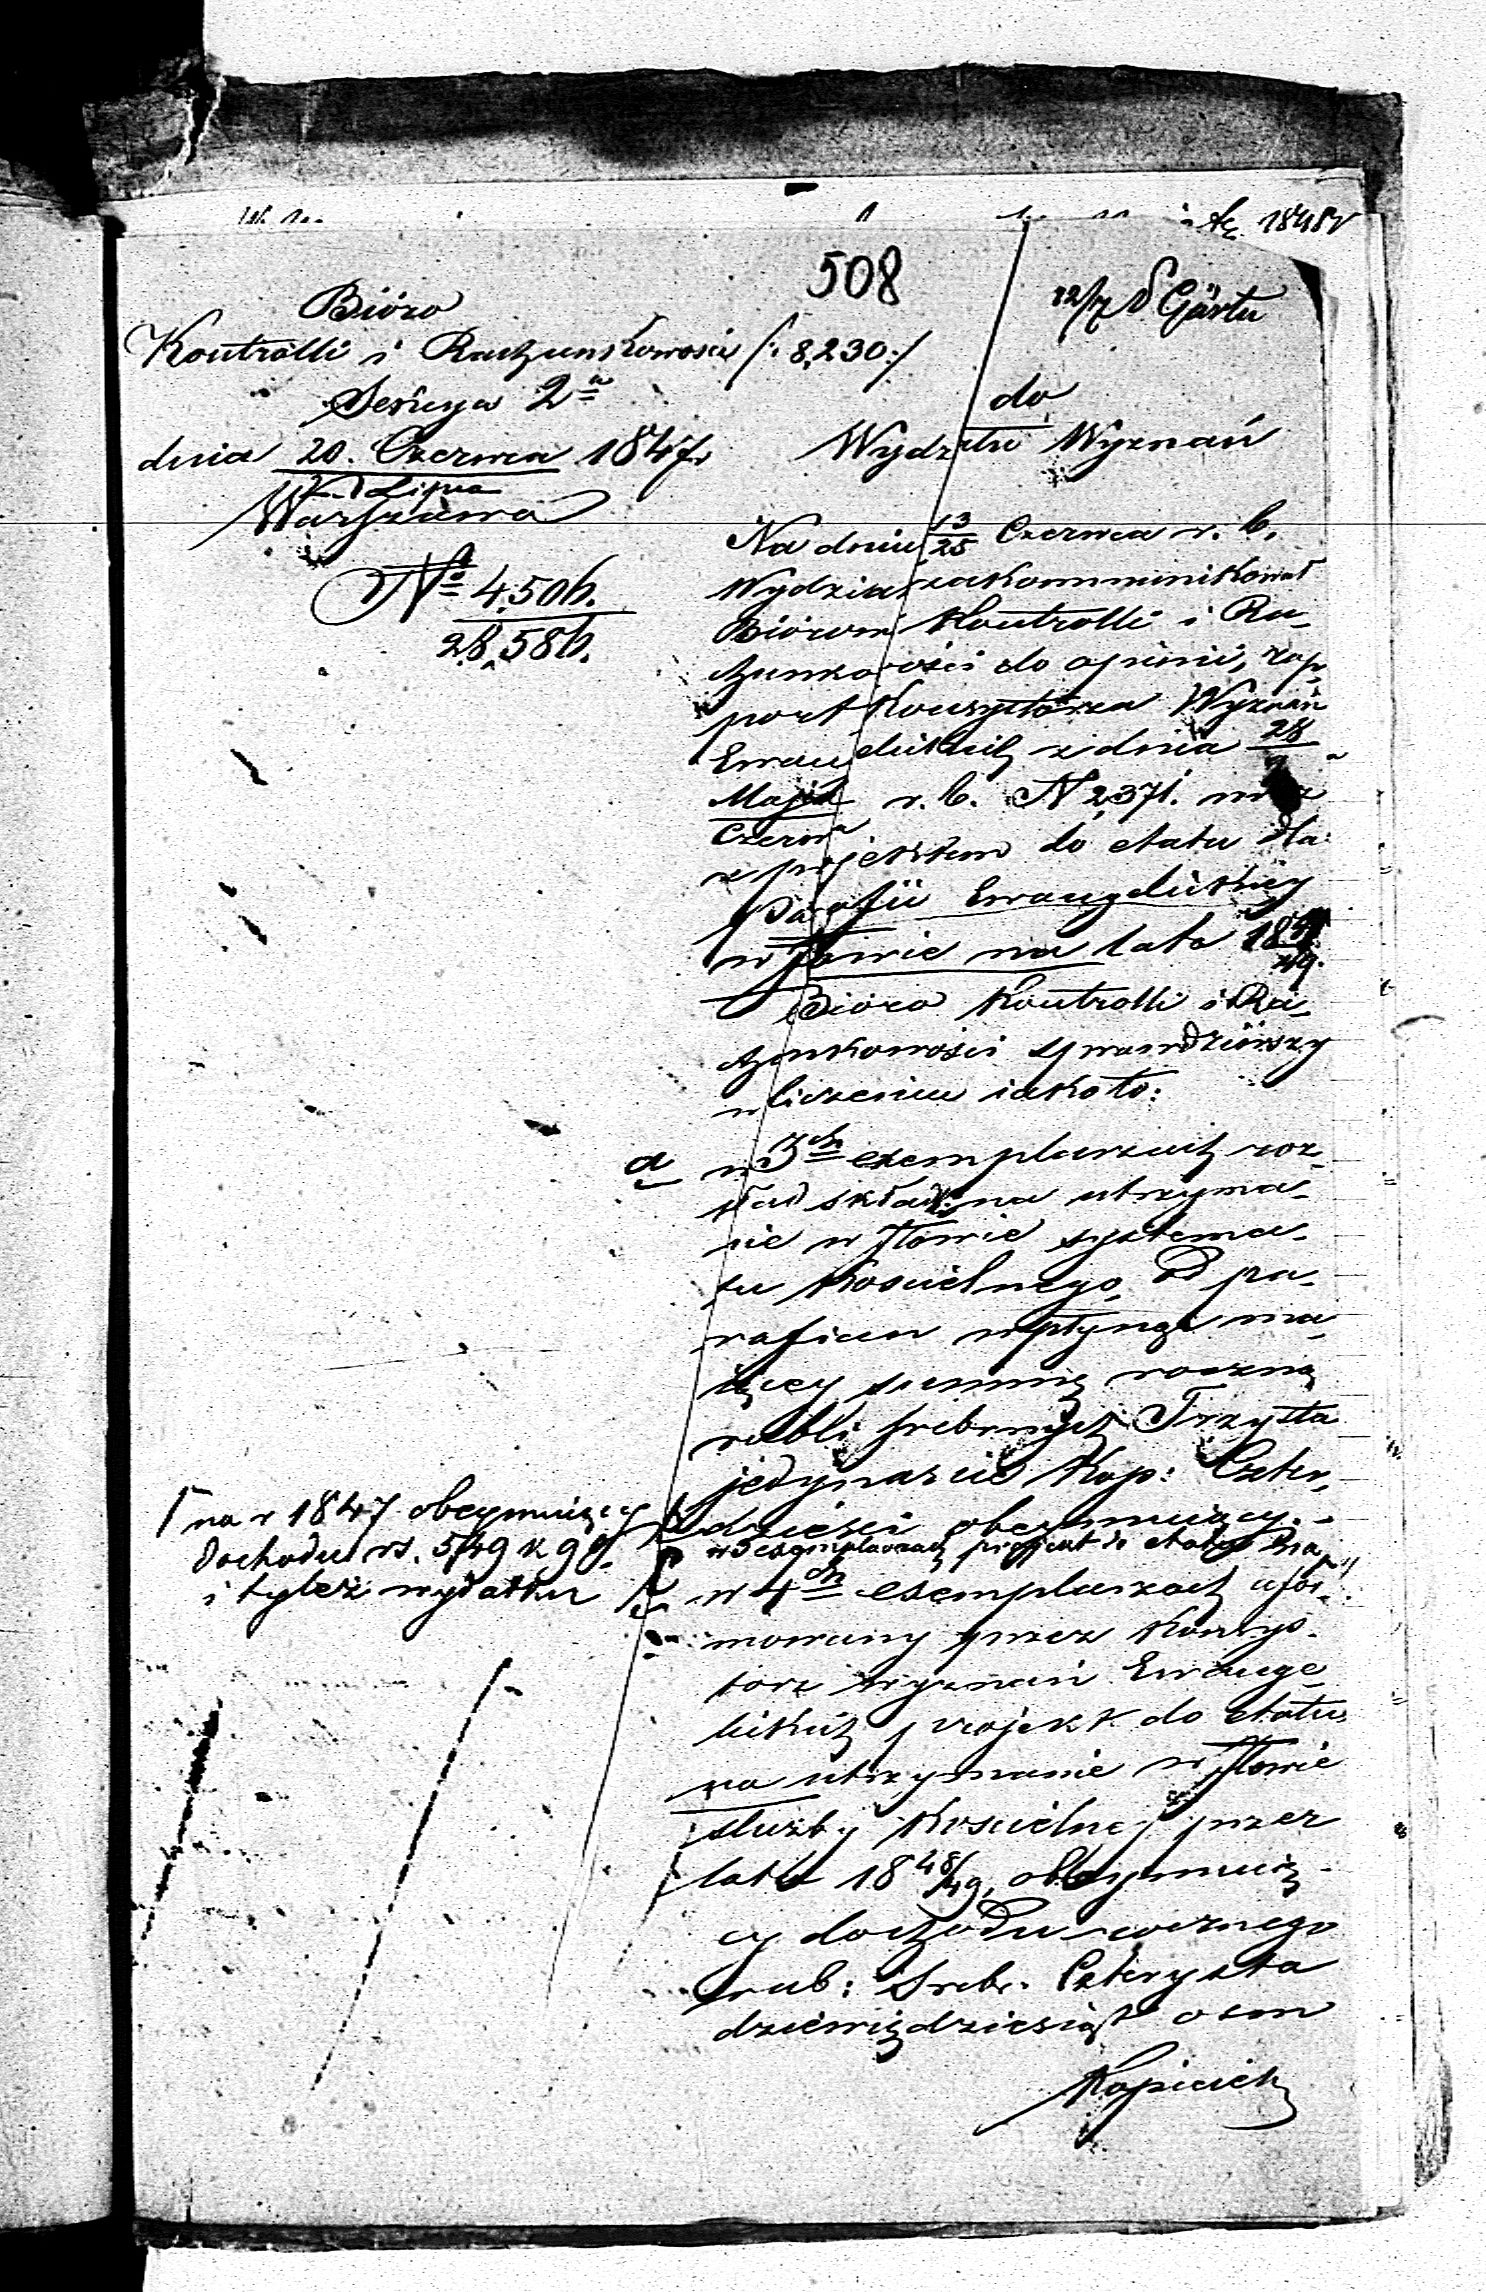 1848r
508
12/7 D Gärtu
Bióro
Kontrolli i Rachunkowości /: 8,230 :/
Sekcya 2a
dnia 20. Czerwca 1847r
2 Lipca
Warszawa
No 4,506.
28,586.
do
Wydziału Wyznań
Na dniu 13/25 Czerwca r. b.
Wydział zakommunikował
Biórowi Kontrolli i Ra-
chunkowości do opinii, rap-
port Konsystorza Wyznań
Ewangelickich z dnia 28/9
Maja r. b. N 2,371. wraz
Czerw
z projektem do etatu dla
Parafii Ewangelickiej
w Iłowie na lata 18 /49.
Bióro Kontrolli i Ra-
chunkowości sprawdziwszy
w liczeniu iako to:
a w 3ch exemplarzach roz-
kład składki na utrzyma-
nie w Iłowie systema-
tu Kościelnego, od pa-
rafian wpłynąć ma-
iącey summę roczną
rubli srebrnych Trzysta
jedynaście Kop: Czter-
dzieści obeymuiący.-
w 3 exemplarzach projekt do etatu
na r 1847 obeymuiący
dochodu rs. 549 k 99.
i tyleż wydatku
w 4ch exemplarzach ufor-
mowany przez Konsys-
torz wyznań Ewange-
lickich projekt do etatu
na utrzymanie w Iłowie
służby Kościelney przez
lata 18 48/49, obeymuią-
cy dochodu rocznego
rub: Srebr. Czterysta
dziewięćdziesiąt osm
Kopieiek